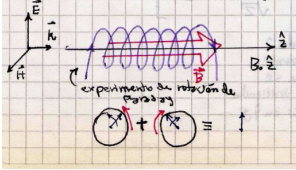 E
k
ẑ
H
B
B₀ ẑ
experimento de rotación de
Faraday
+ ≡